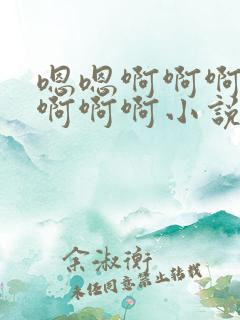 嗯嗯啊啊啊
啊啊啊小说
余淑衡
未经同意禁止转载